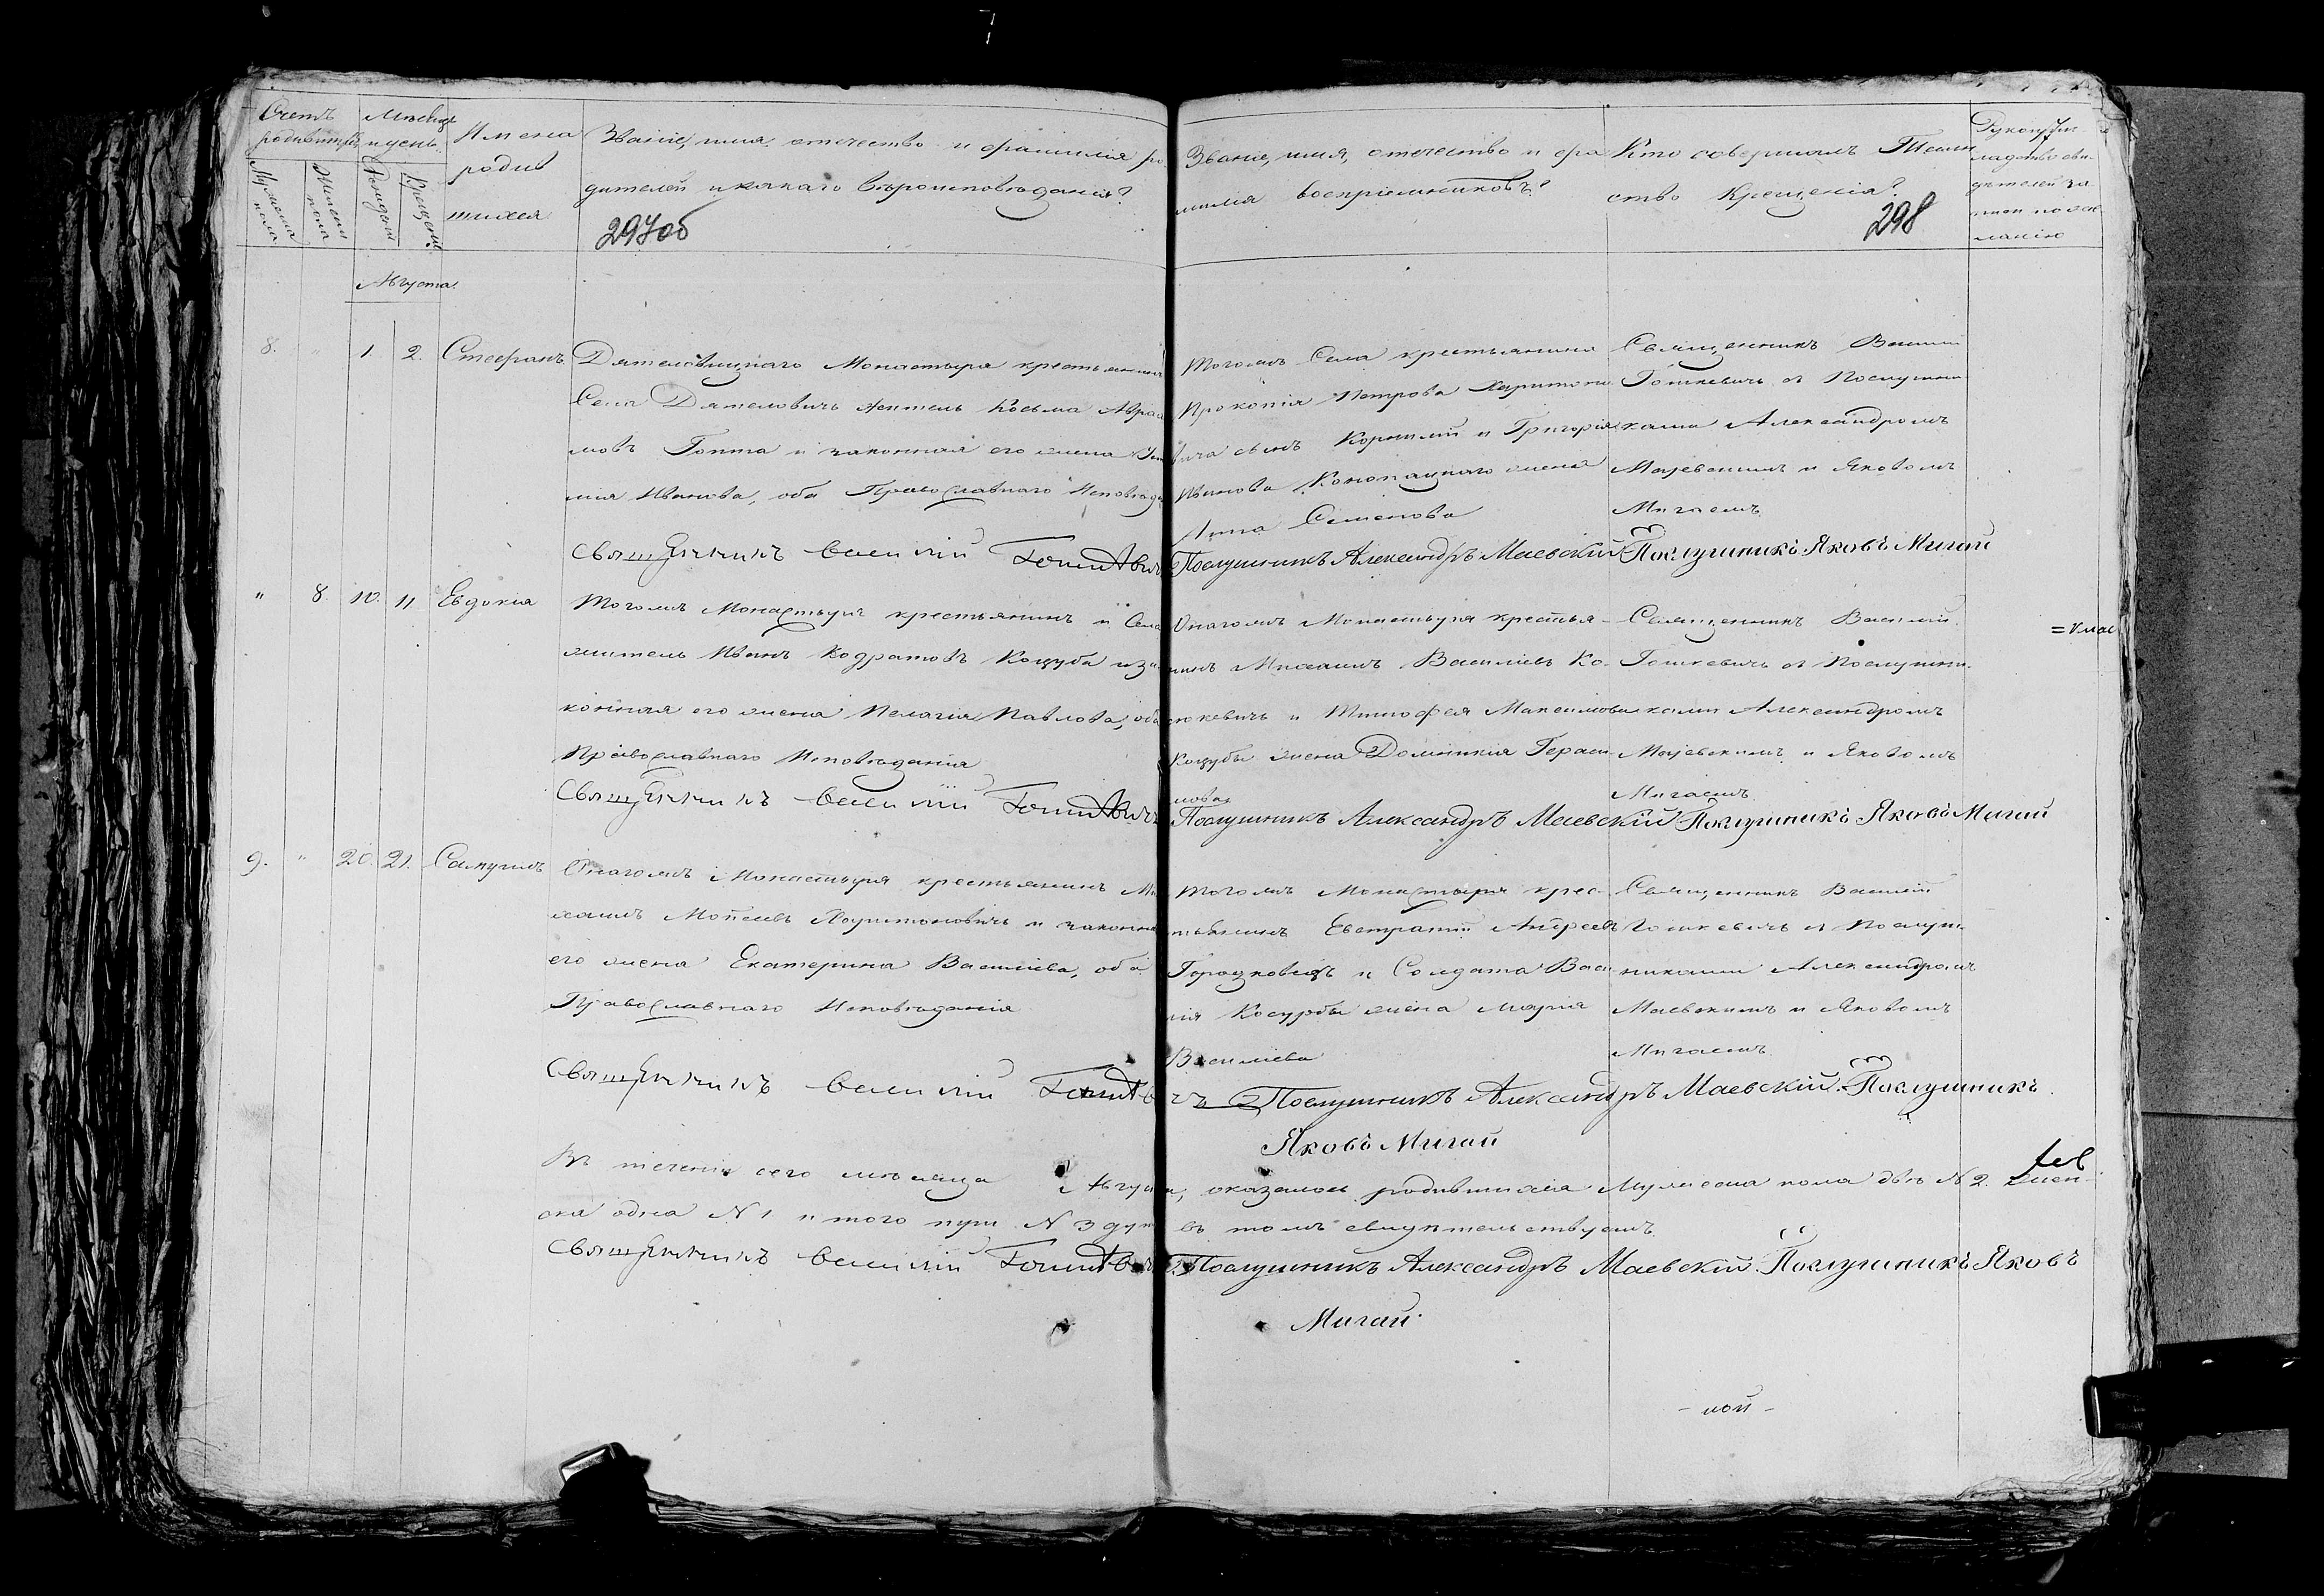 Счетъ родившихся
Мужеска пола
Женска пола
Мѣсяцъ и день
Рожденія
Крещенія
Имена родив
шихся
Званіе, имя, отечество и фамилія ро
дителей и какаго вѣроисповѣданія?
297об
Званіе, имя, отечество и фа
милія воспріемниковъ?
Кто совершалъ Таин
ство Крещенія?
298
Рукоприк
ладство сви
дѣтелей за
писи по же
ланію
Августа
8. " 1. 2. Стефанъ
Дятеловицкаго Монастыря крестьянинъ
Села Дятеловичь житель Косьма Авраа
мовъ Гопта и законная его жена
Иванова, оба Православнаго Исповѣда
Священникъ Василій Гошкевичъ
Тогожъ Села крестьянина
Прокопія Петрова Харитоно
вича сынъ Корнилій и Григорія
Иванова Конопацкаго жена
Анна Семенова
Священникъ Василій
Гошкевичь съ Послушни
ками Александромъ
Маевскимъ и Яковомъ
Мигаемъ
Послушникъ Александръ Маевскій Послушникъ Яковъ Мигай
" 8. 10. 11. Евдокія
Тогожъ Монастыря крестьянинъ и Села
житель Иванъ Кодратовъ Коцуба и за
конная его жена Пелагія Павлова, оба
Православнаго Исповѣданія
Священникъ Василій Гошкевичъ
Онагожъ Монастыря крестья-
нинъ Михаилъ Василіевъ Ко-
юкевичь и Тимофея Максимова
Коцубы жена Домникія Гераси-
мова
Священникъ Василій
Гошкевичь съ Послушни-
ками Александромъ
Маевскимъ и Яковомъ
Мигаемъ
Послушникъ Александръ Маевскій Послушникъ Яковъ Мигай
9. " 20. 21. Самуилъ
Онагожъ Монастыря крестьянинъ Ми
хаилъ Моѵсеевъ Харитоновичь и законная
его жена Екатерина Василіева, оба
Православнаго Исповѣданія
Священникъ Василій Гошкевичъ
Тогожъ Монастыря крес-
тьянинъ Евстратій Андреевъ
Горошковецъ и Солдата Васи
лія Коцубы жена Марія
Василіева
Священникъ Василій
Гошкевичь съ Послуш-
никами Александромъ
Маевскимъ и Яковомъ
Мигаемъ
Послушникъ Александръ Маевскій. Послушникъ
Яковъ Мигай
Въ теченіи сего мѣсяца Августа, оказалось родившихся Мужеска пола двѣ № 2. Жен-
ска одна № 1 итого № 3 душ въ томъ свидѣтельствуемъ
Священникъ Василій Гошкевичъ Послушникъ Александръ Маевскій. Послушникъ Яковъ
Мигай
- ной -